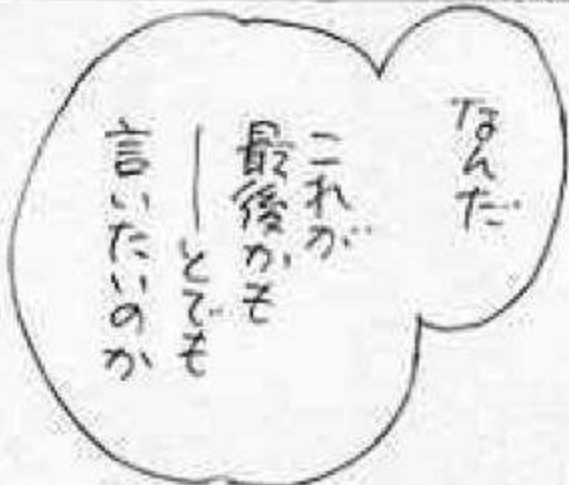 なんだ
これが
最後かも
――とでも
言いたいのか